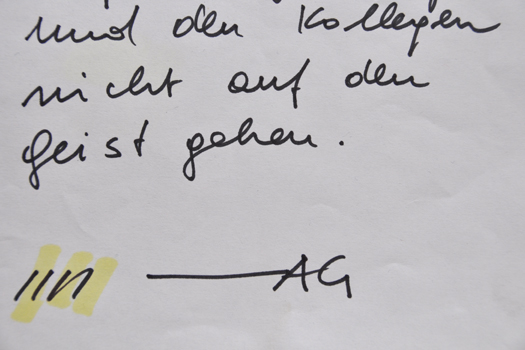 und den Kollegen
nicht auf den
Geist gehen.
AG